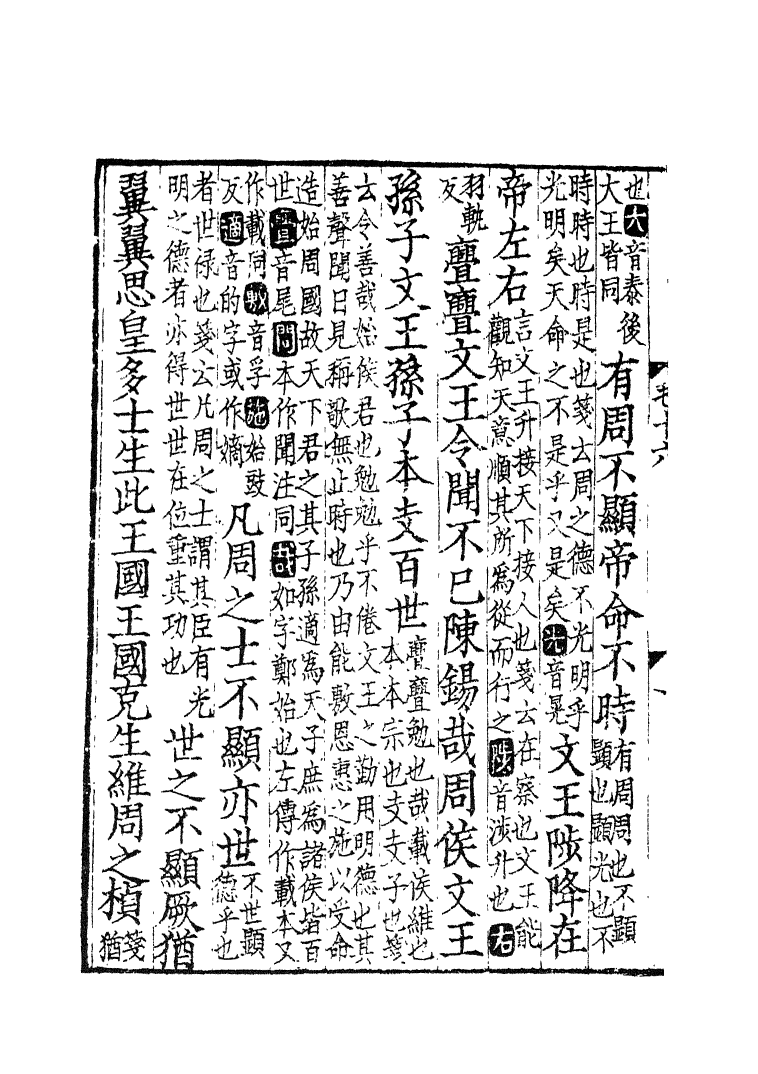 也大音泰後
大王皆同
有周不顯帝命不時
有周周也不顯
顯也顯光也不
時時也時是也箋云周之德不光明乎
光明矣天命之不是乎又是矣光音晃
文王陟降在
帝左右
言文王升接天下接人也箋云在察也文王能
觀知天意順其所爲從而行之陟音涉升也右
羽軌
反
亹亹文王令聞不已陳錫哉周侯文王
孫子文王孫子本支百世
亹亹勉也哉載侯維也
本本宗也支支子也箋
云令善哉始侯君也勉勉乎不倦文王之勤用明德也其
善聲聞日見稱歌無止時也乃由能敷恩惠之施以受命
造始周國故天下君之其子孫適爲天子庶爲諸侯皆百
世亹音尾問本作聞注同哉如字鄭始也左傳作載本又
作載同敷音孚施始豉
反適音的字或作嫡
凡周之士不顯亦世
不世顯
德乎也
者世祿也箋云凡周之士謂其臣有光
明之德者亦得世世在位重其功也
世之不顯厥猶
翼翼思皇多士生此王國王國克生維周之楨
箋
猶